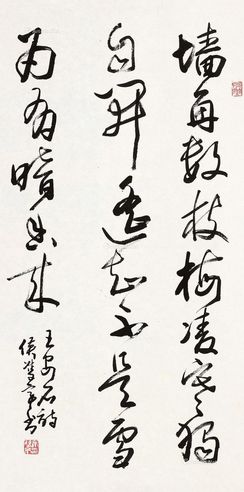 墙角数枝梅凌寒独
自开遥知不是雪
为有暗香来
王安石诗
侯
书